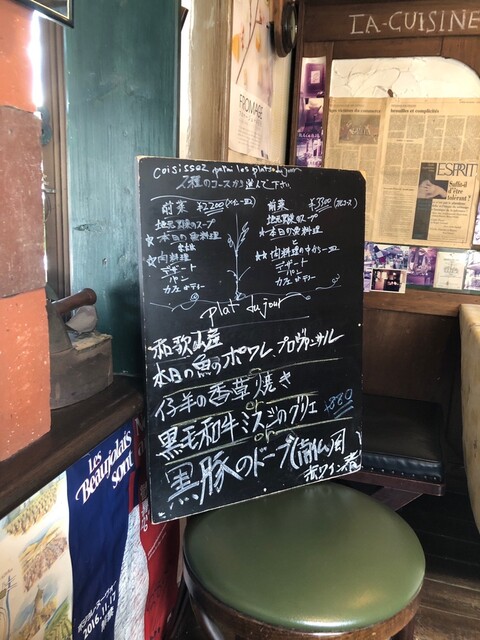 LA-CUISINE
FROMAGE
ESPRIT
Coisissez parmi les plats du jour
2種のコースから選んで下さい
前菜 ¥2200
地元野菜のスープ
☆本日の魚料理
☆肉料理
デザート
パン
カフェ or ティー
前菜 ¥3300
地元野菜のスープ
★本日の魚料理
と
★★肉料理の中から一皿
デザート
パン
カフェ or ティー
plat du jour
和歌山産
本日の魚のポワレ、プロヴァンサル
or
仔羊の香草焼き
or
黒毛和牛ミスジのグリエ +880
or
黒豚のドーブ(南仏)風
赤ワイン煮
Les
Beaujolais
sont
2016.11.17